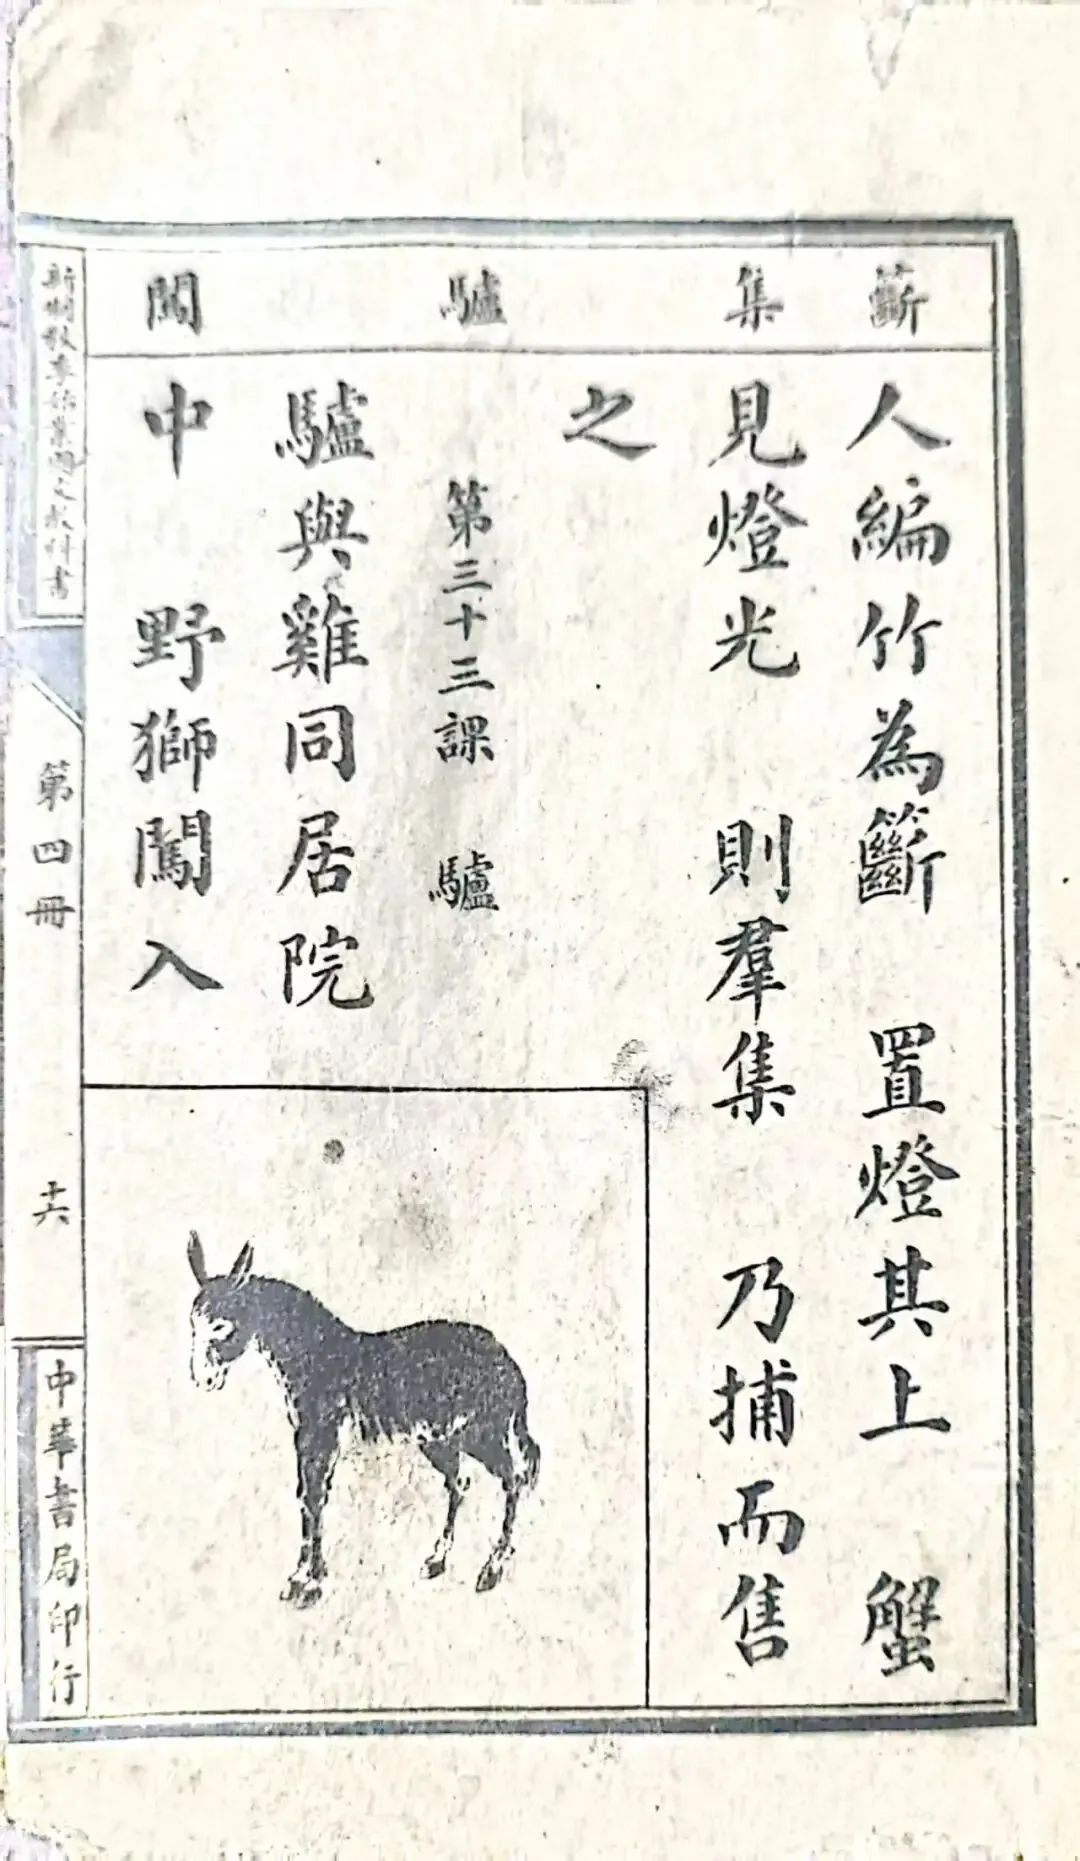 籪 集 驢 闖
人編竹為籪 置燈其上 蟹
見燈光 則羣集 乃捕而售
之
第三十三課 驢
驢與雞同居院
中 野獅闖入
新制秋季始業國文教科書
第四冊
十六
中華書局印行